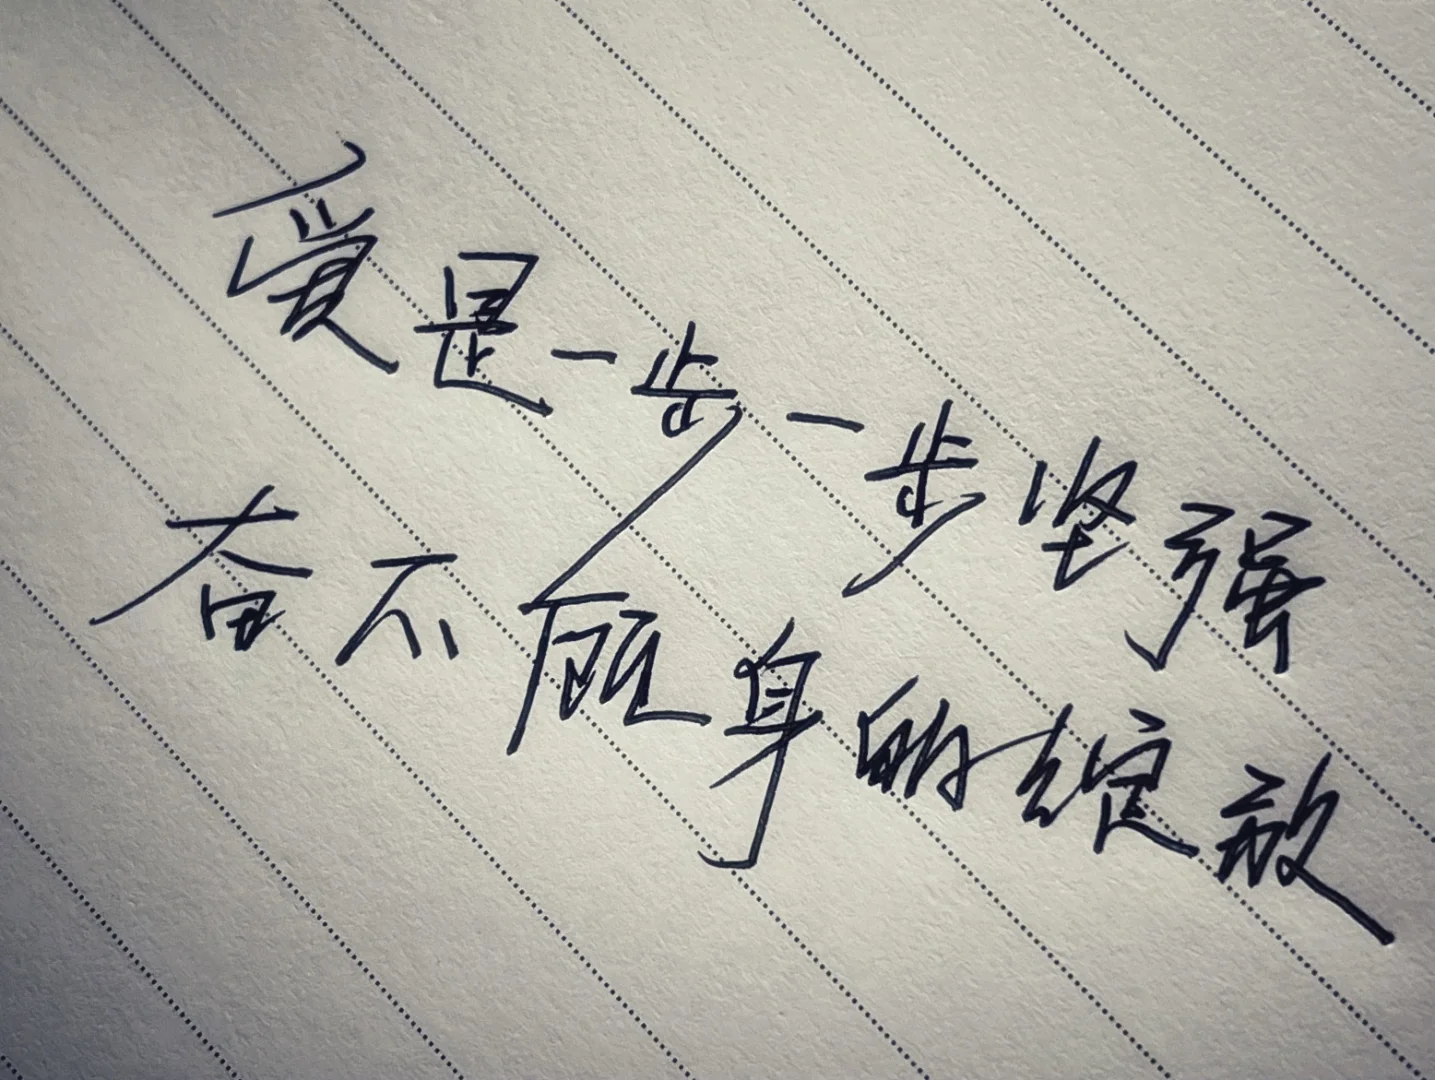 爱是一步一步坚强
奋不顾身的绽放